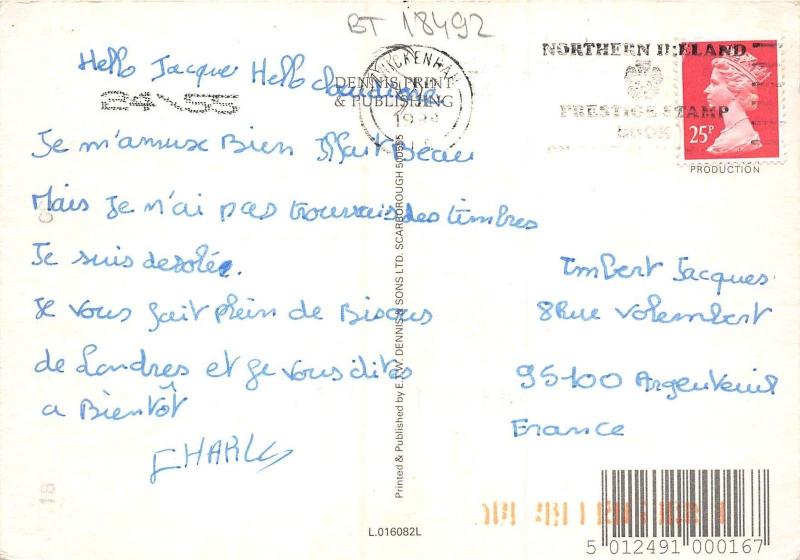 BT 18492
Hello Jacques Hello claudine
Je m'amuse Bien Il fait Beau
Mais Je n'ai pas trouvais des timbres
Je suis desolée.
Je vous fait plein de Bisous
de Londres et je vous dites
a Bientôt
CHARLES
DENNIS PRINT
& PUBLISHING
TWICKENHAM
NORTHERN IRELAND
PRESTIGE STAMP
BOOK
25P
PRODUCTION
Imbert Jacques
8 Rue Volembert
95100 Argenteuil
France
Printed & Published by E.T.W. DENNIS & SONS LTD. SCARBOROUGH 500555
L.016082L
18
5 012491 000167